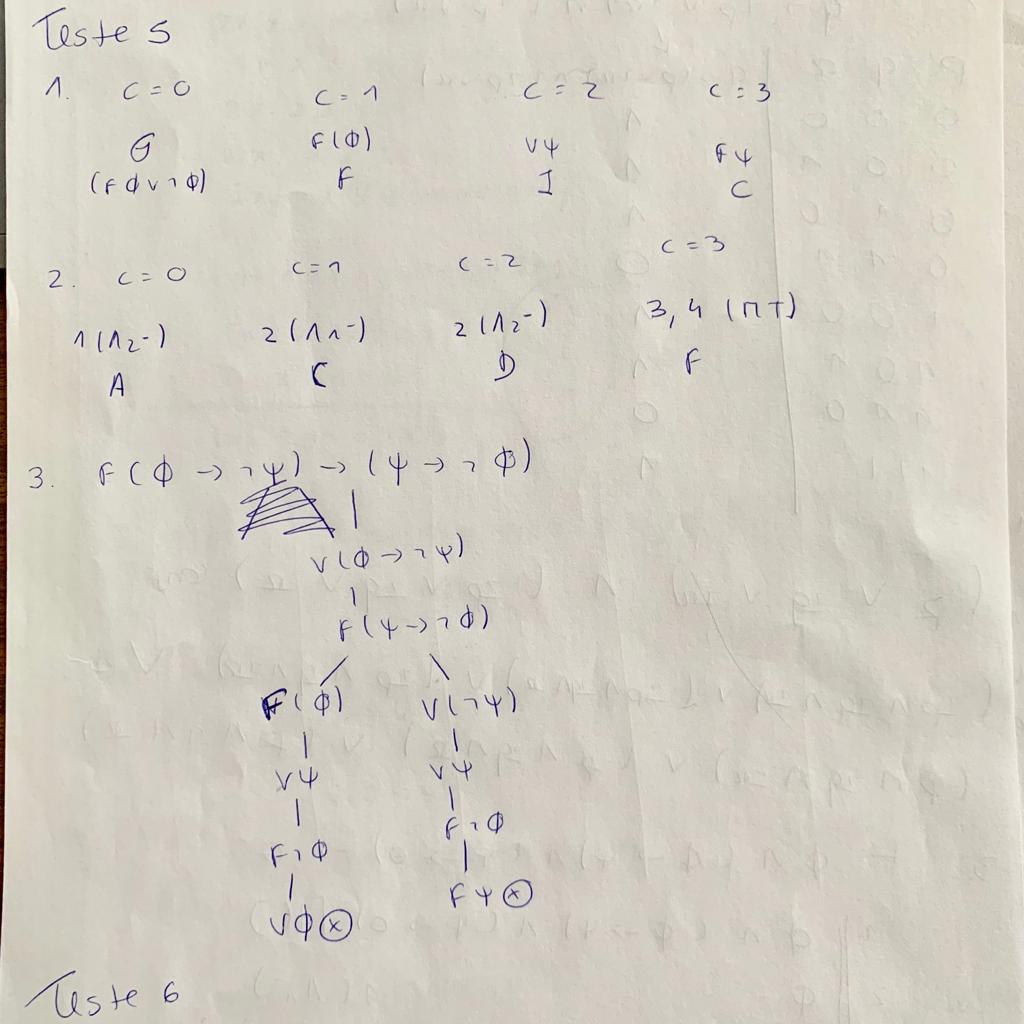 Teste 5
1. C = 0 C = 1 C = 2 C = 3
G F(ϕ) Vψ Fψ
(Fϕ∨¬ϕ) F I C
2. C = 0 C = 1 C = 2 C = 3
1(∧2-) 2(∧1-) 2(∧2-) 3, 4 (MT)
A C D F
3. F(ϕ → ¬ψ) → (ψ → ¬ϕ)
V(ϕ → ¬ψ)
F(ψ → ¬ϕ)
F(ϕ) V(¬ψ)
Vψ Vψ
F¬ϕ F¬ϕ
Vϕ ⊗ Fψ ⊗
Teste 6